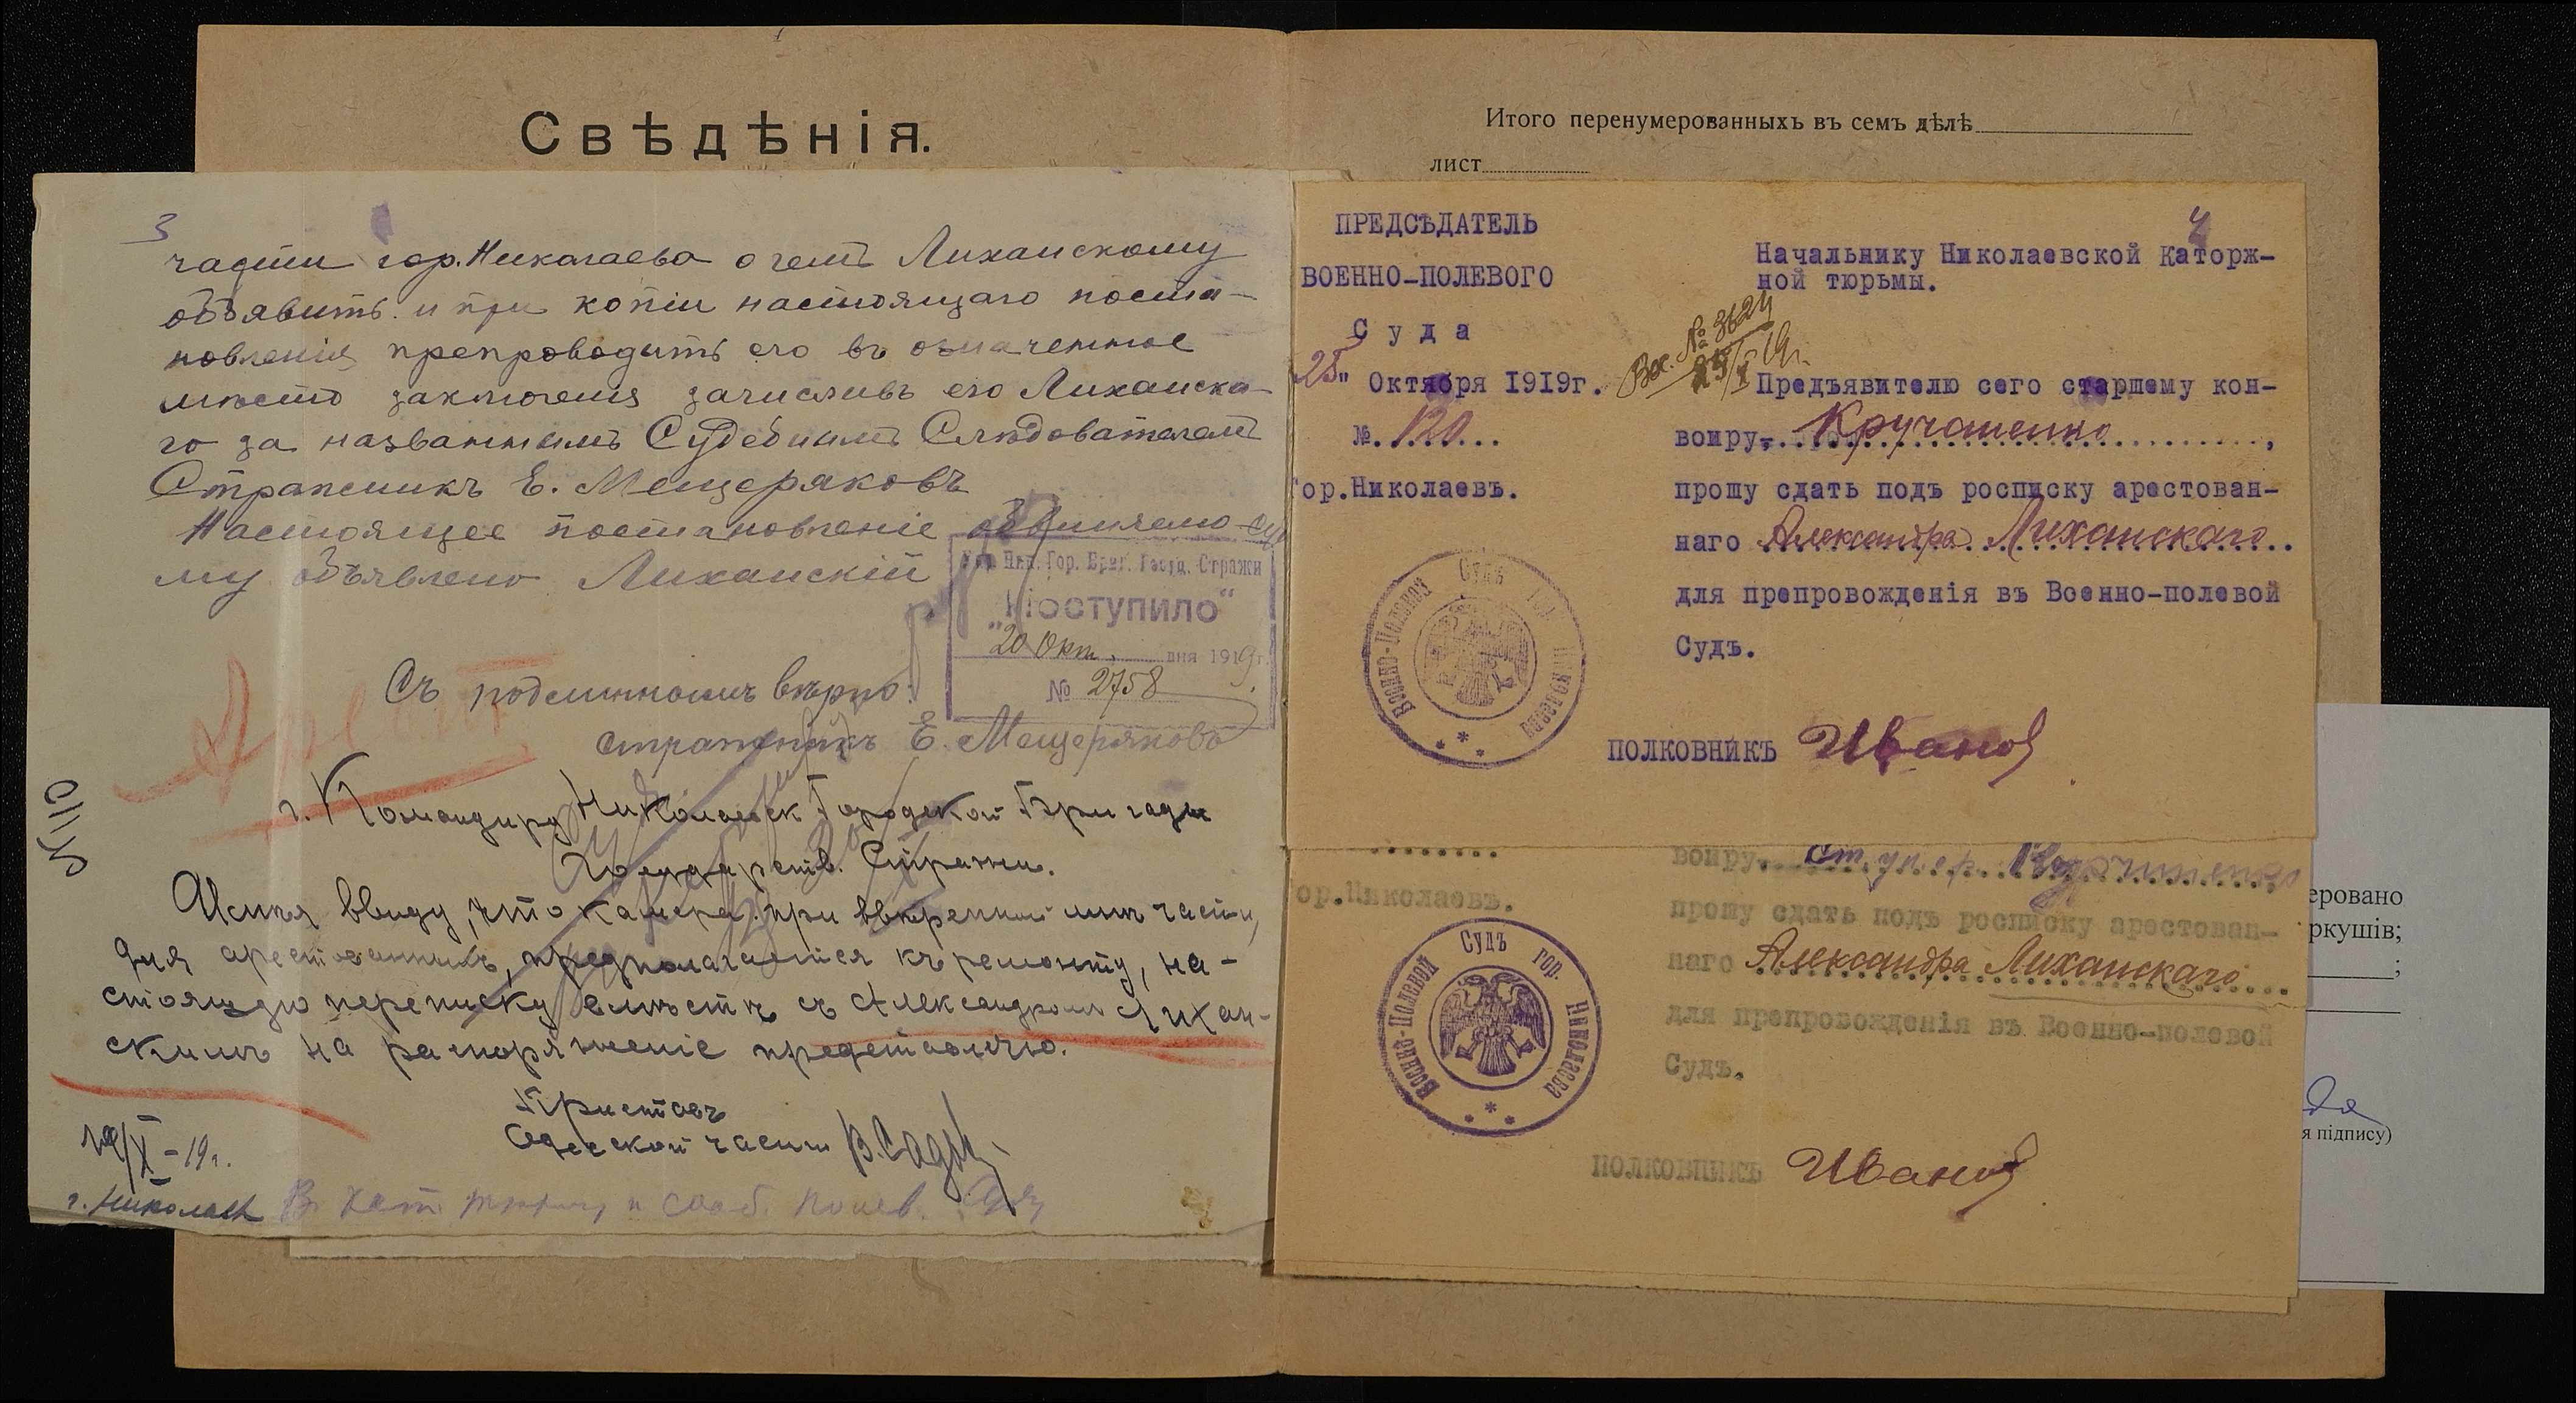 Свѣдѣнія.
3
части гор. Николаева о чемъ Лиханскому
объявить и при копіи настоящаго поста-
новленія препроводить его въ означенное
мѣсто заключенія зачисливъ его Лиханска-
го за названнымъ Судебнымъ Слѣдователемъ
Стражникъ Е. Мещеряковъ
Настоящее постановленіе
му объявлено Лиханскій
Гор. Бриг. Госуд. Стражи
"Поступило"
20 Окт. дня 1919 г.
№ 2758
Съ подлиннымъ вѣрно:
стражникъ Е. Мещеряковъ
Арест
г. Командиру Николаевск Городской Бригады
Государств. Стражи.
Имѣя ввиду, что камера при ввѣренной мнѣ части,
для арестованныхъ, предполагается къ ремонту, на-
стоящую переписку вмѣстѣ съ Александромъ Лихан-
скимъ на распоряженіе представляю.
Приставъ
Одесской части
/X - 19 г.
г. Николаев
Итого перенумерованныхъ въ семъ дѣлѣ
лист
4
ПРЕДСѢДАТЕЛЬ
ВОЕННО-ПОЛЕВОГО
Суда
25" Октября 1919г.
№. 120...
гор.Николаевъ.
Начальнику Николаевской Каторж-
ной тюрьмы.
Вх. № 3624
25/X 19г.
Предъявителю сего старшему кон-
воиру, Кручатенко,
прошу сдать подъ росписку арестован-
наго Александра Лиханскаго
для препровожденія въ Военно-полевой
Судъ.
Военно-Полевой Судъ гор. Николаева
ПОЛКОВНИКЪ Иванов
воиру ст. унтер.
гор.Николаевъ.
прошу сдать подъ росписку арестован-
наго Александра Лиханскаго
для препровожденія въ Военно-полевой
Судъ.
Военно-Полевой Судъ гор. Николаева
ПОЛКОВНИКЪ Иванов
еровано
ркушів;
я підпису)